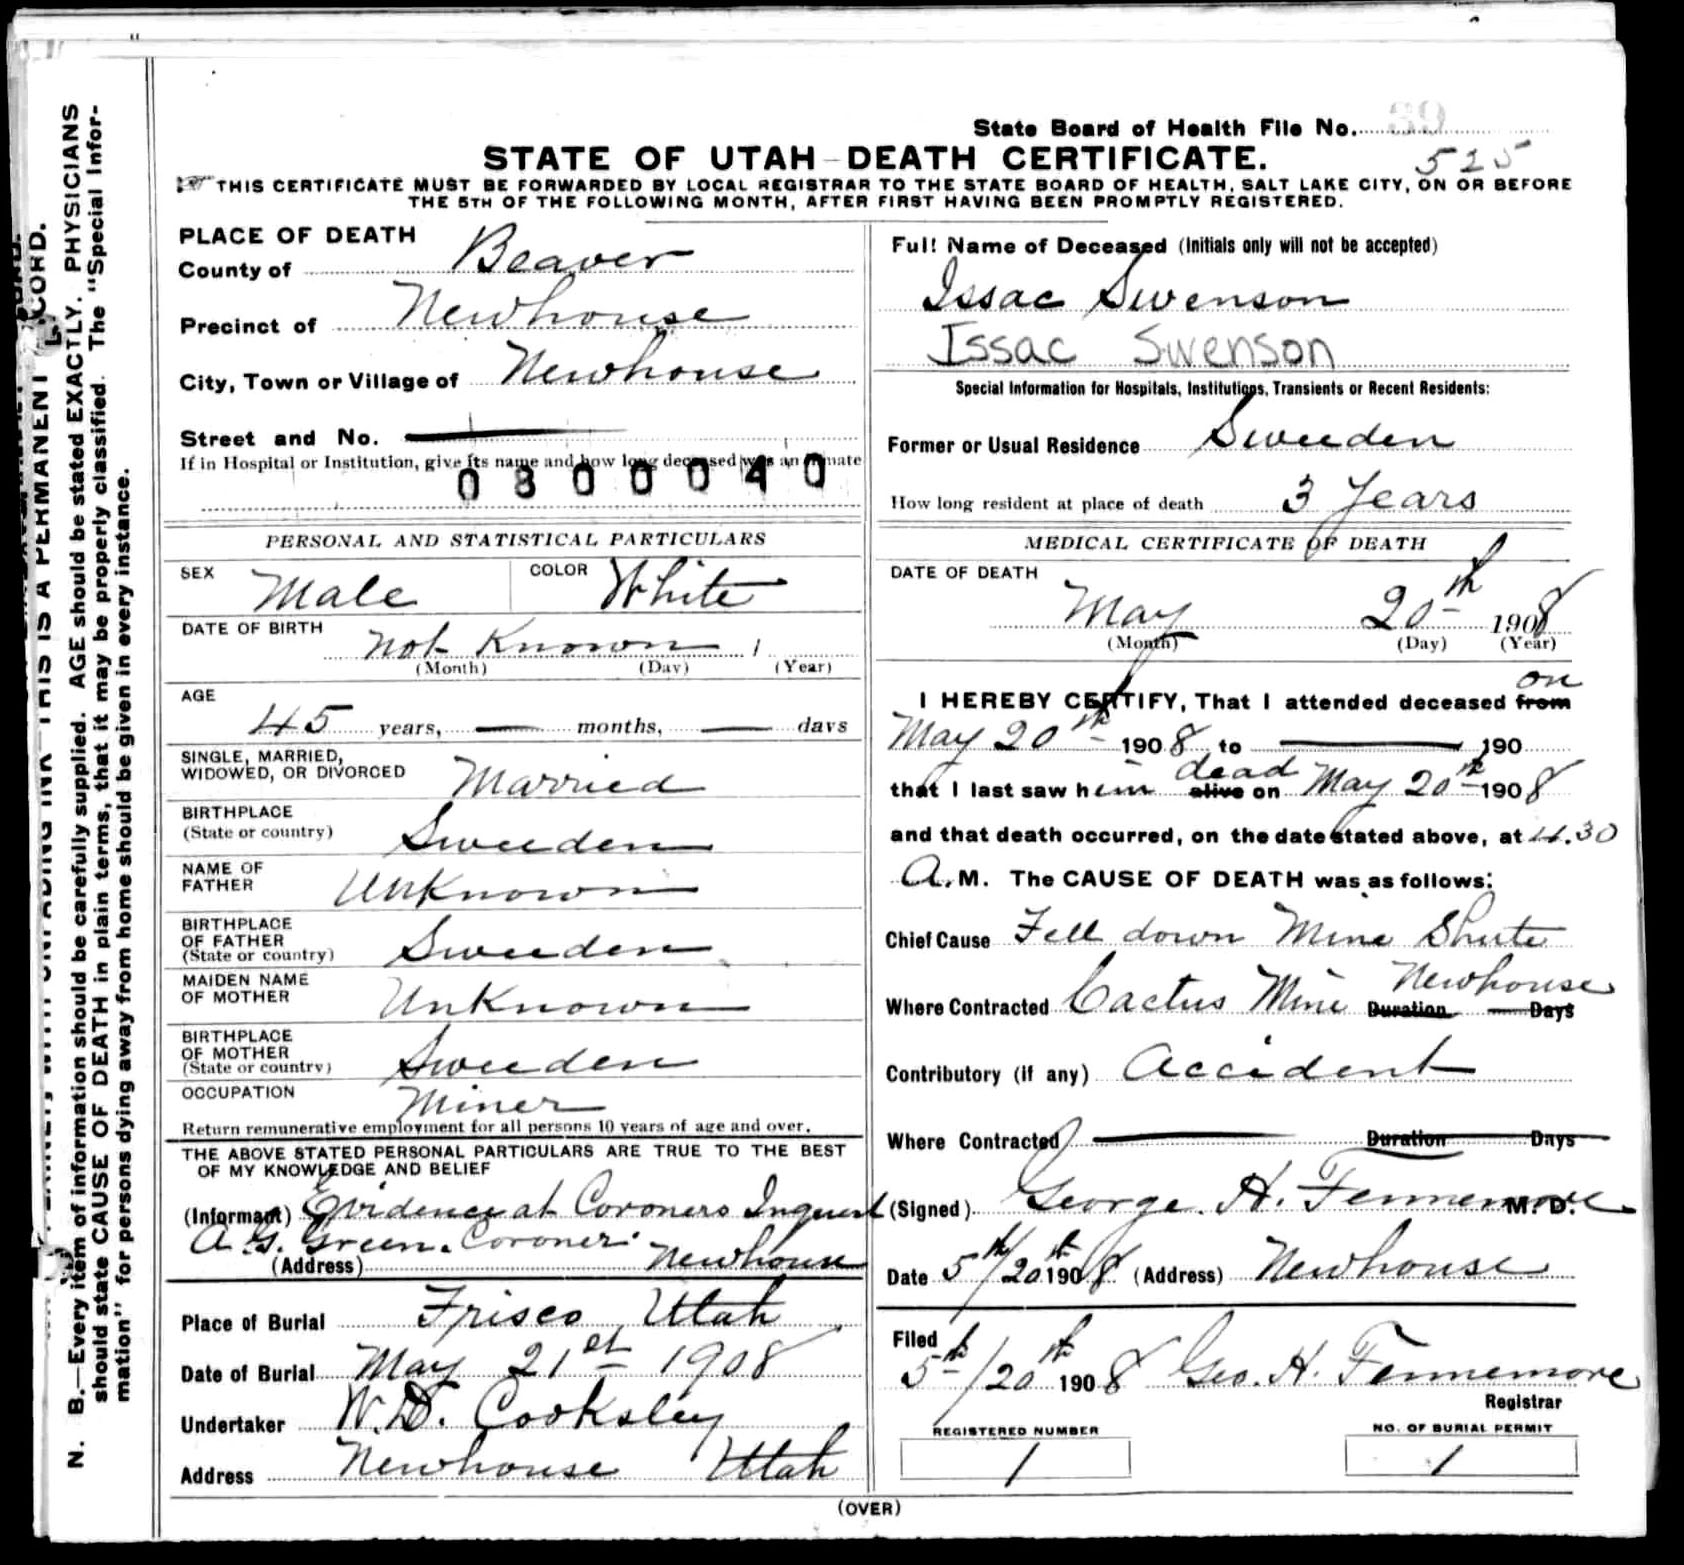 State Board of Health File No. 39
STATE OF UTAH—DEATH CERTIFICATE. 525
THIS CERTIFICATE MUST BE FORWARDED BY LOCAL REGISTRAR TO THE STATE BOARD OF HEALTH, SALT LAKE CITY, ON OR BEFORE
THE 5TH OF THE FOLLOWING MONTH, AFTER FIRST HAVING BEEN PROMPTLY REGISTERED.
PLACE OF DEATH
County of Beaver
Precinct of Newhouse
City, Town or Village of Newhouse
Street and No. —
If in Hospital or Institution, give its name and how long deceased was an inmate
0300040
PERSONAL AND STATISTICAL PARTICULARS
SEX Male COLOR White
DATE OF BIRTH not Known 1
(Month) (Day) (Year)
AGE
45 years, — months, — days
SINGLE, MARRIED,
WIDOWED, OR DIVORCED Married
BIRTHPLACE
(State or country) Sweeden
NAME OF
FATHER Unknown
BIRTHPLACE
OF FATHER
(State or country) Sweeden
MAIDEN NAME
OF MOTHER Unknown
BIRTHPLACE
OF MOTHER
(State or country) Sweeden
OCCUPATION Miner
Return remunerative employment for all persons 10 years of age and over.
THE ABOVE STATED PERSONAL PARTICULARS ARE TRUE TO THE BEST
OF MY KNOWLEDGE AND BELIEF
(Informant) Evidence at Coroners Inquest
A. G. Green. Coroner.
(Address) Newhouse
Place of Burial Frisco Utah
Date of Burial May 21st 1908
Undertaker W. D. Cooksley
Address Newhouse Utah
Full Name of Deceased (Initials only will not be accepted)
Issac Swenson
Issac Swenson
Special Information for Hospitals, Institutions, Transients or Recent Residents:
Former or Usual Residence Sweeden
How long resident at place of death 3 Years
MEDICAL CERTIFICATE OF DEATH
DATE OF DEATH
May 20th 1908
(Month) (Day) (Year)
on
I HEREBY CERTIFY, That I attended deceased from
May 20th 1908 to — 190
dead
that I last saw him alive on May 20th 1908
and that death occurred, on the date stated above, at 4.30
A. M. The CAUSE OF DEATH was as follows:
Chief Cause Fell down Mine Shute
Newhouse
Where Contracted Cactus Mine Duration — Days
Contributory (if any) Accident
Where Contracted — Duration Days
(Signed) George. H. Fennemore M. D.
Date 5th/20th 1908 (Address) Newhouse
Filed
5th/20th 1908 Geo. H. Fennemore
Registrar
REGISTERED NUMBER NO. OF BURIAL PERMIT
1 1
(OVER)
N. B.—Every item of information should be carefully supplied. AGE should be stated EXACTLY. PHYSICIANS
should state CAUSE OF DEATH in plain terms, that it may be properly classified. The "Special Infor-
mation" for persons dying away from home should be given in every instance.
THIS IS A PERMANENT